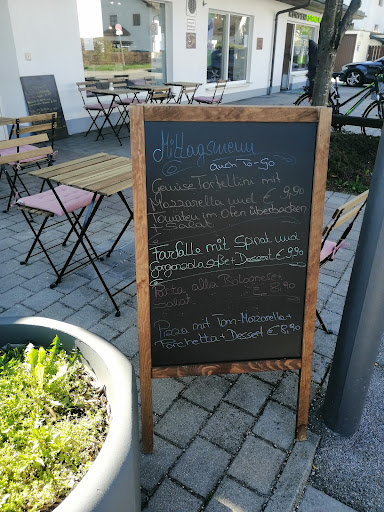 Mittagsmenü
auch To-Go
Gemüse Tortellini mit
Mozzarella und € 9,90
Tomaten im Ofen überbacken
+ Salat
Farfalle mit Spinat und
Gorgonzola soße + Dessert € 9,90
Pasta alla Bolognese +
Salat € 8,90
Pizza mit Tom-Mozzarella +
Porchetta + Dessert € 8,90